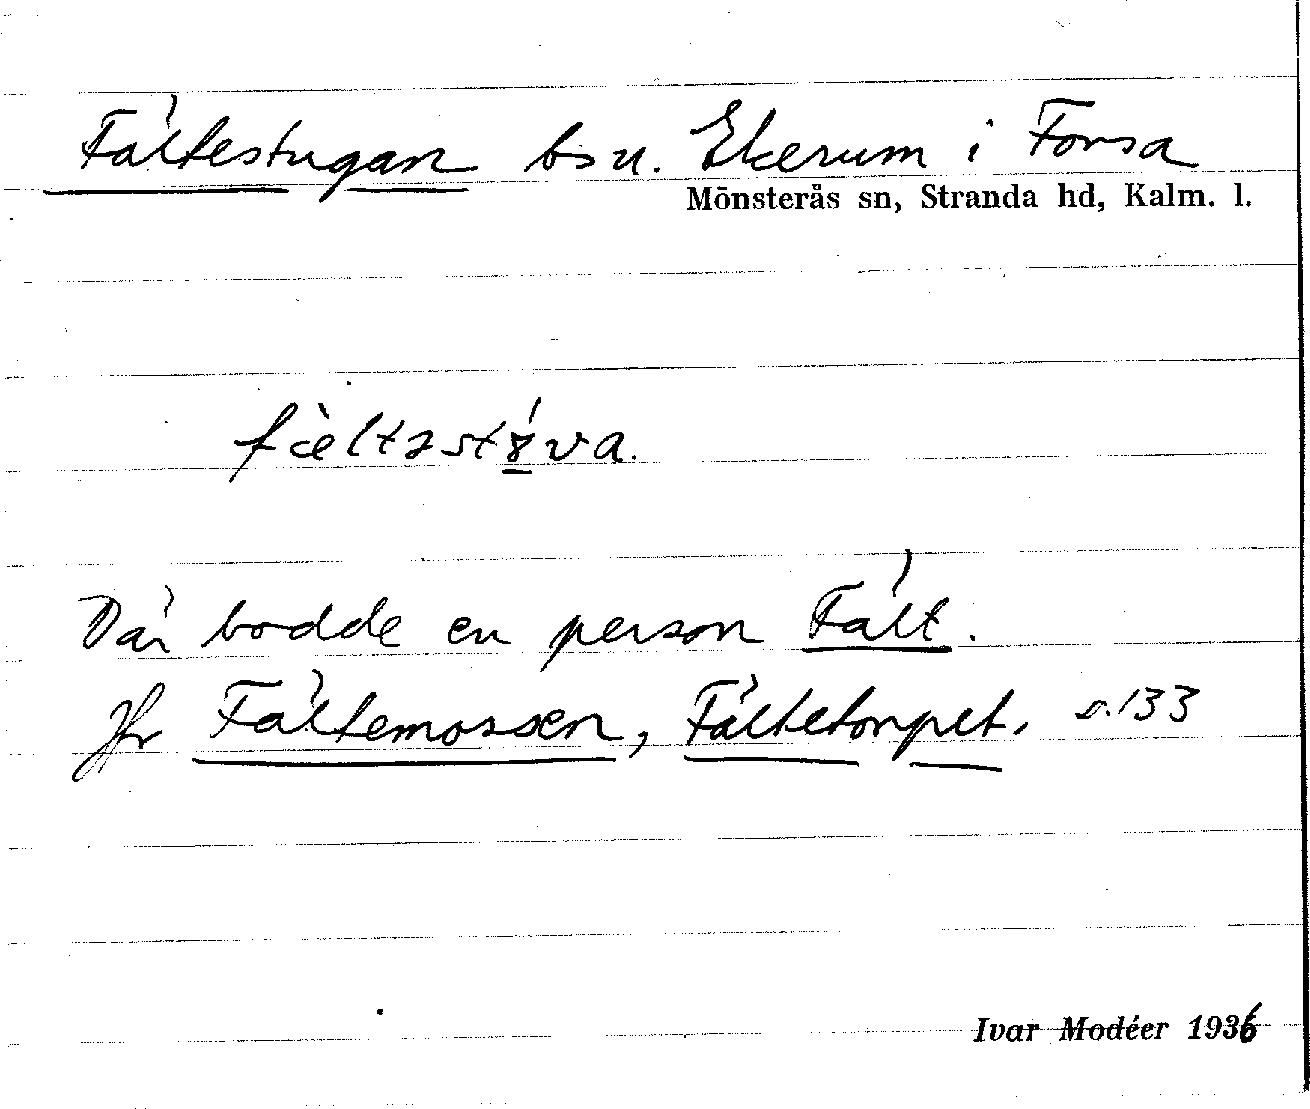 Fältestugan bsn. Ekerum i Forsa
Mönsterås sn, Stranda hd, Kalm. l.
fæ̀ltəstɤ́va.
Där bodde en person Fält.
Jfr Fältemossen, Fältetorpet. s. 133
Ivar Modéer 1936